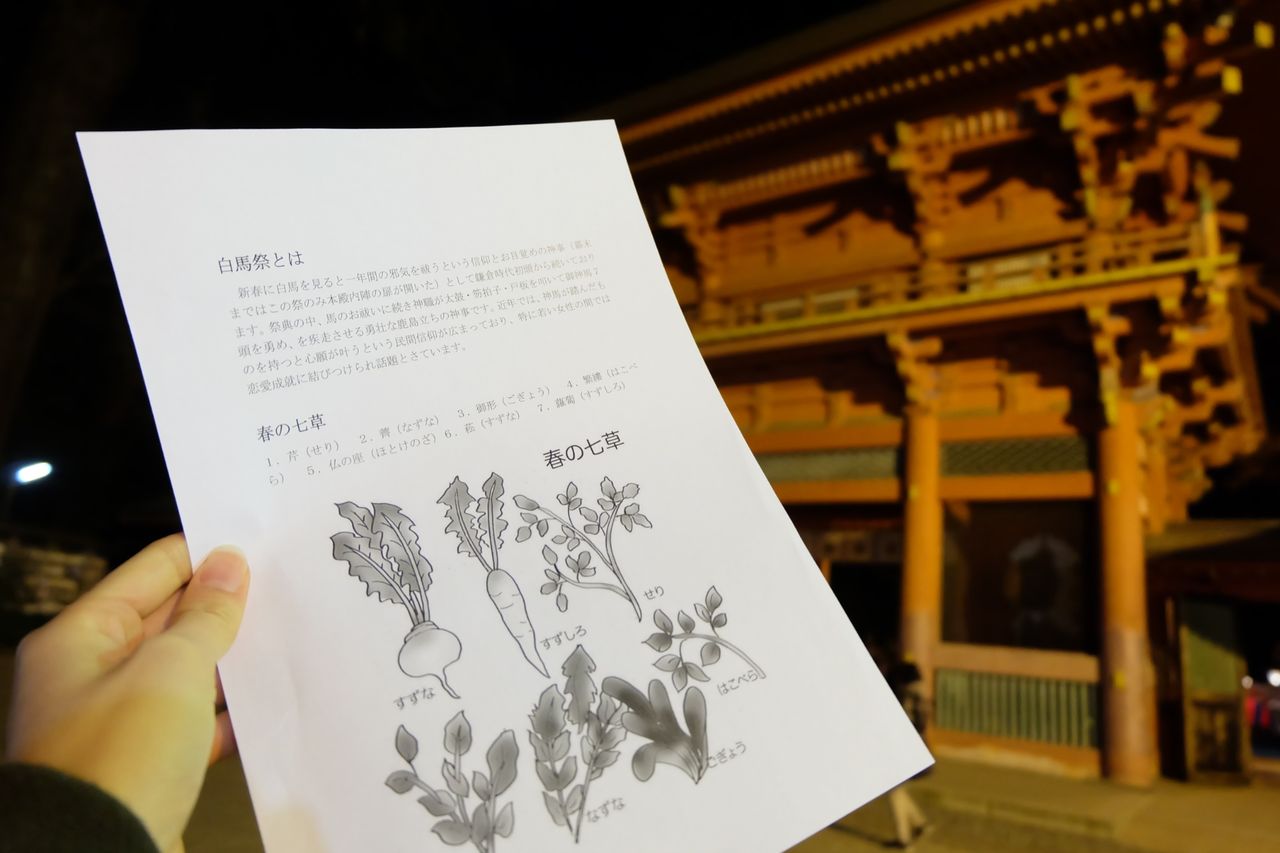 白馬祭とは
新春に白馬を見ると一年間の邪気を祓うという信仰とお目覚めの神事（幕末
まではこの祭のみ本殿内陣の扉が開いた）として鎌倉時代初頭から続いており
ます。祭典の中、馬のお祓いに続き神職が太鼓・笏拍子・戸板を叩いて御神馬7
頭を勇め、を疾走させる勇壮な鹿島立ちの神事です。近年では、神馬が踏んだも
のを持つと心願が叶うという民間信仰が広まっており、特に若い女性の間では
恋愛成就に結びつけられ話題とさています。
春の七草
1．芹（せり） 2．薺（なずな） 3．御形（ごぎょう） 4．繁縷（はこべ
ら） 5．仏の座（ほとけのざ）6．菘（すずな） 7．蘿蔔（すずしろ）
春の七草
せり
すずしろ
はこべら
すずな
ごぎょう
なずな